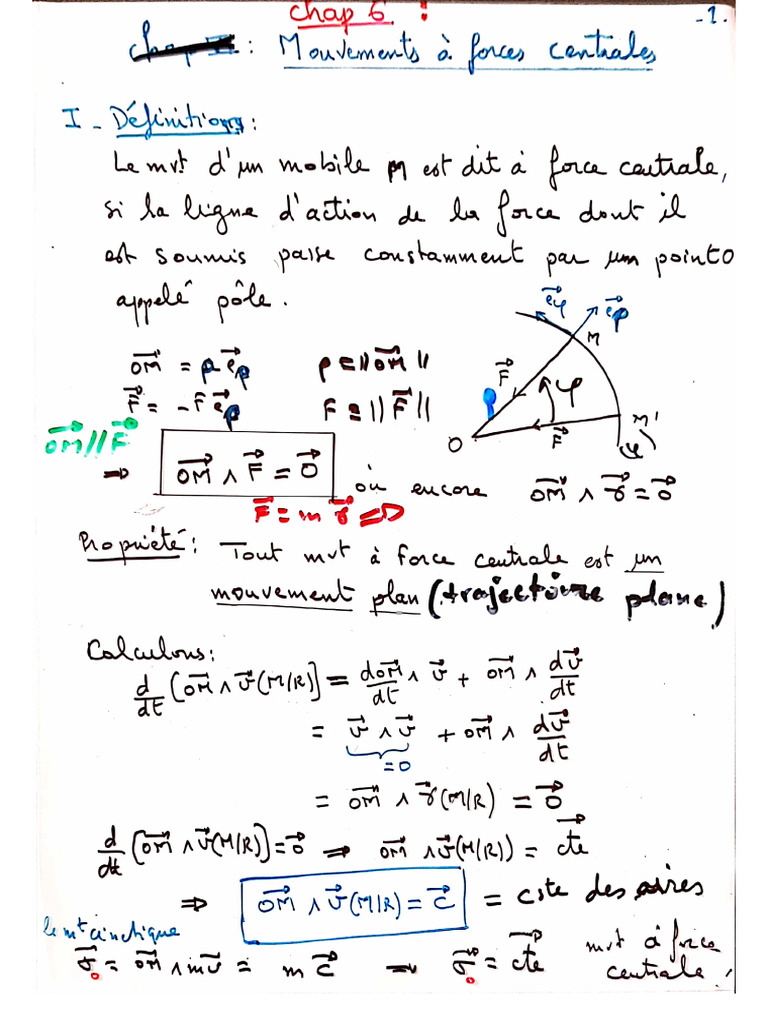 Chap 6 :
-1.
: Mouvements à forces centrales
I - Définitions :
Le mvt d'un mobile M est dit à force centrale,
si la ligne d'action de la force dont il
est soumis passe constamment par un point O
appelé pôle.
e⃗φ e⃗ρ
M
OM⃗ = ρ e⃗ρ ρ = ||OM⃗||
F⃗ = -F e⃗ρ F = ||F⃗||
F⃗ φ
O F⃗ M' (φ)
OM⃗ // F⃗
⇒ OM⃗ ∧ F⃗ = 0⃗ où encore OM⃗ ∧ γ⃗ = 0⃗
F⃗ = m γ⃗ ⇒
Propriété : Tout mvt à force centrale est un
mouvement plan (trajectoire plane)
Calculons :
d/dt [OM⃗ ∧ v⃗(M/R)] = dOM⃗/dt ∧ v⃗ + OM⃗ ∧ dv⃗/dt
= v⃗ ∧ v⃗ + OM⃗ ∧ dv⃗/dt
=0
= OM⃗ ∧ γ⃗(M/R) = 0⃗
d/dt [OM⃗ ∧ v⃗(M/R)] = 0⃗ ⇒ OM⃗ ∧ v⃗(M/R)) = cte⃗
⇒ OM⃗ ∧ v⃗(M/R) = C⃗ = cste des aires
le mt cinétique
σ⃗o = OM⃗ ∧ mv⃗ = m C⃗ → σ⃗o = cte⃗ mvt à force
centrale